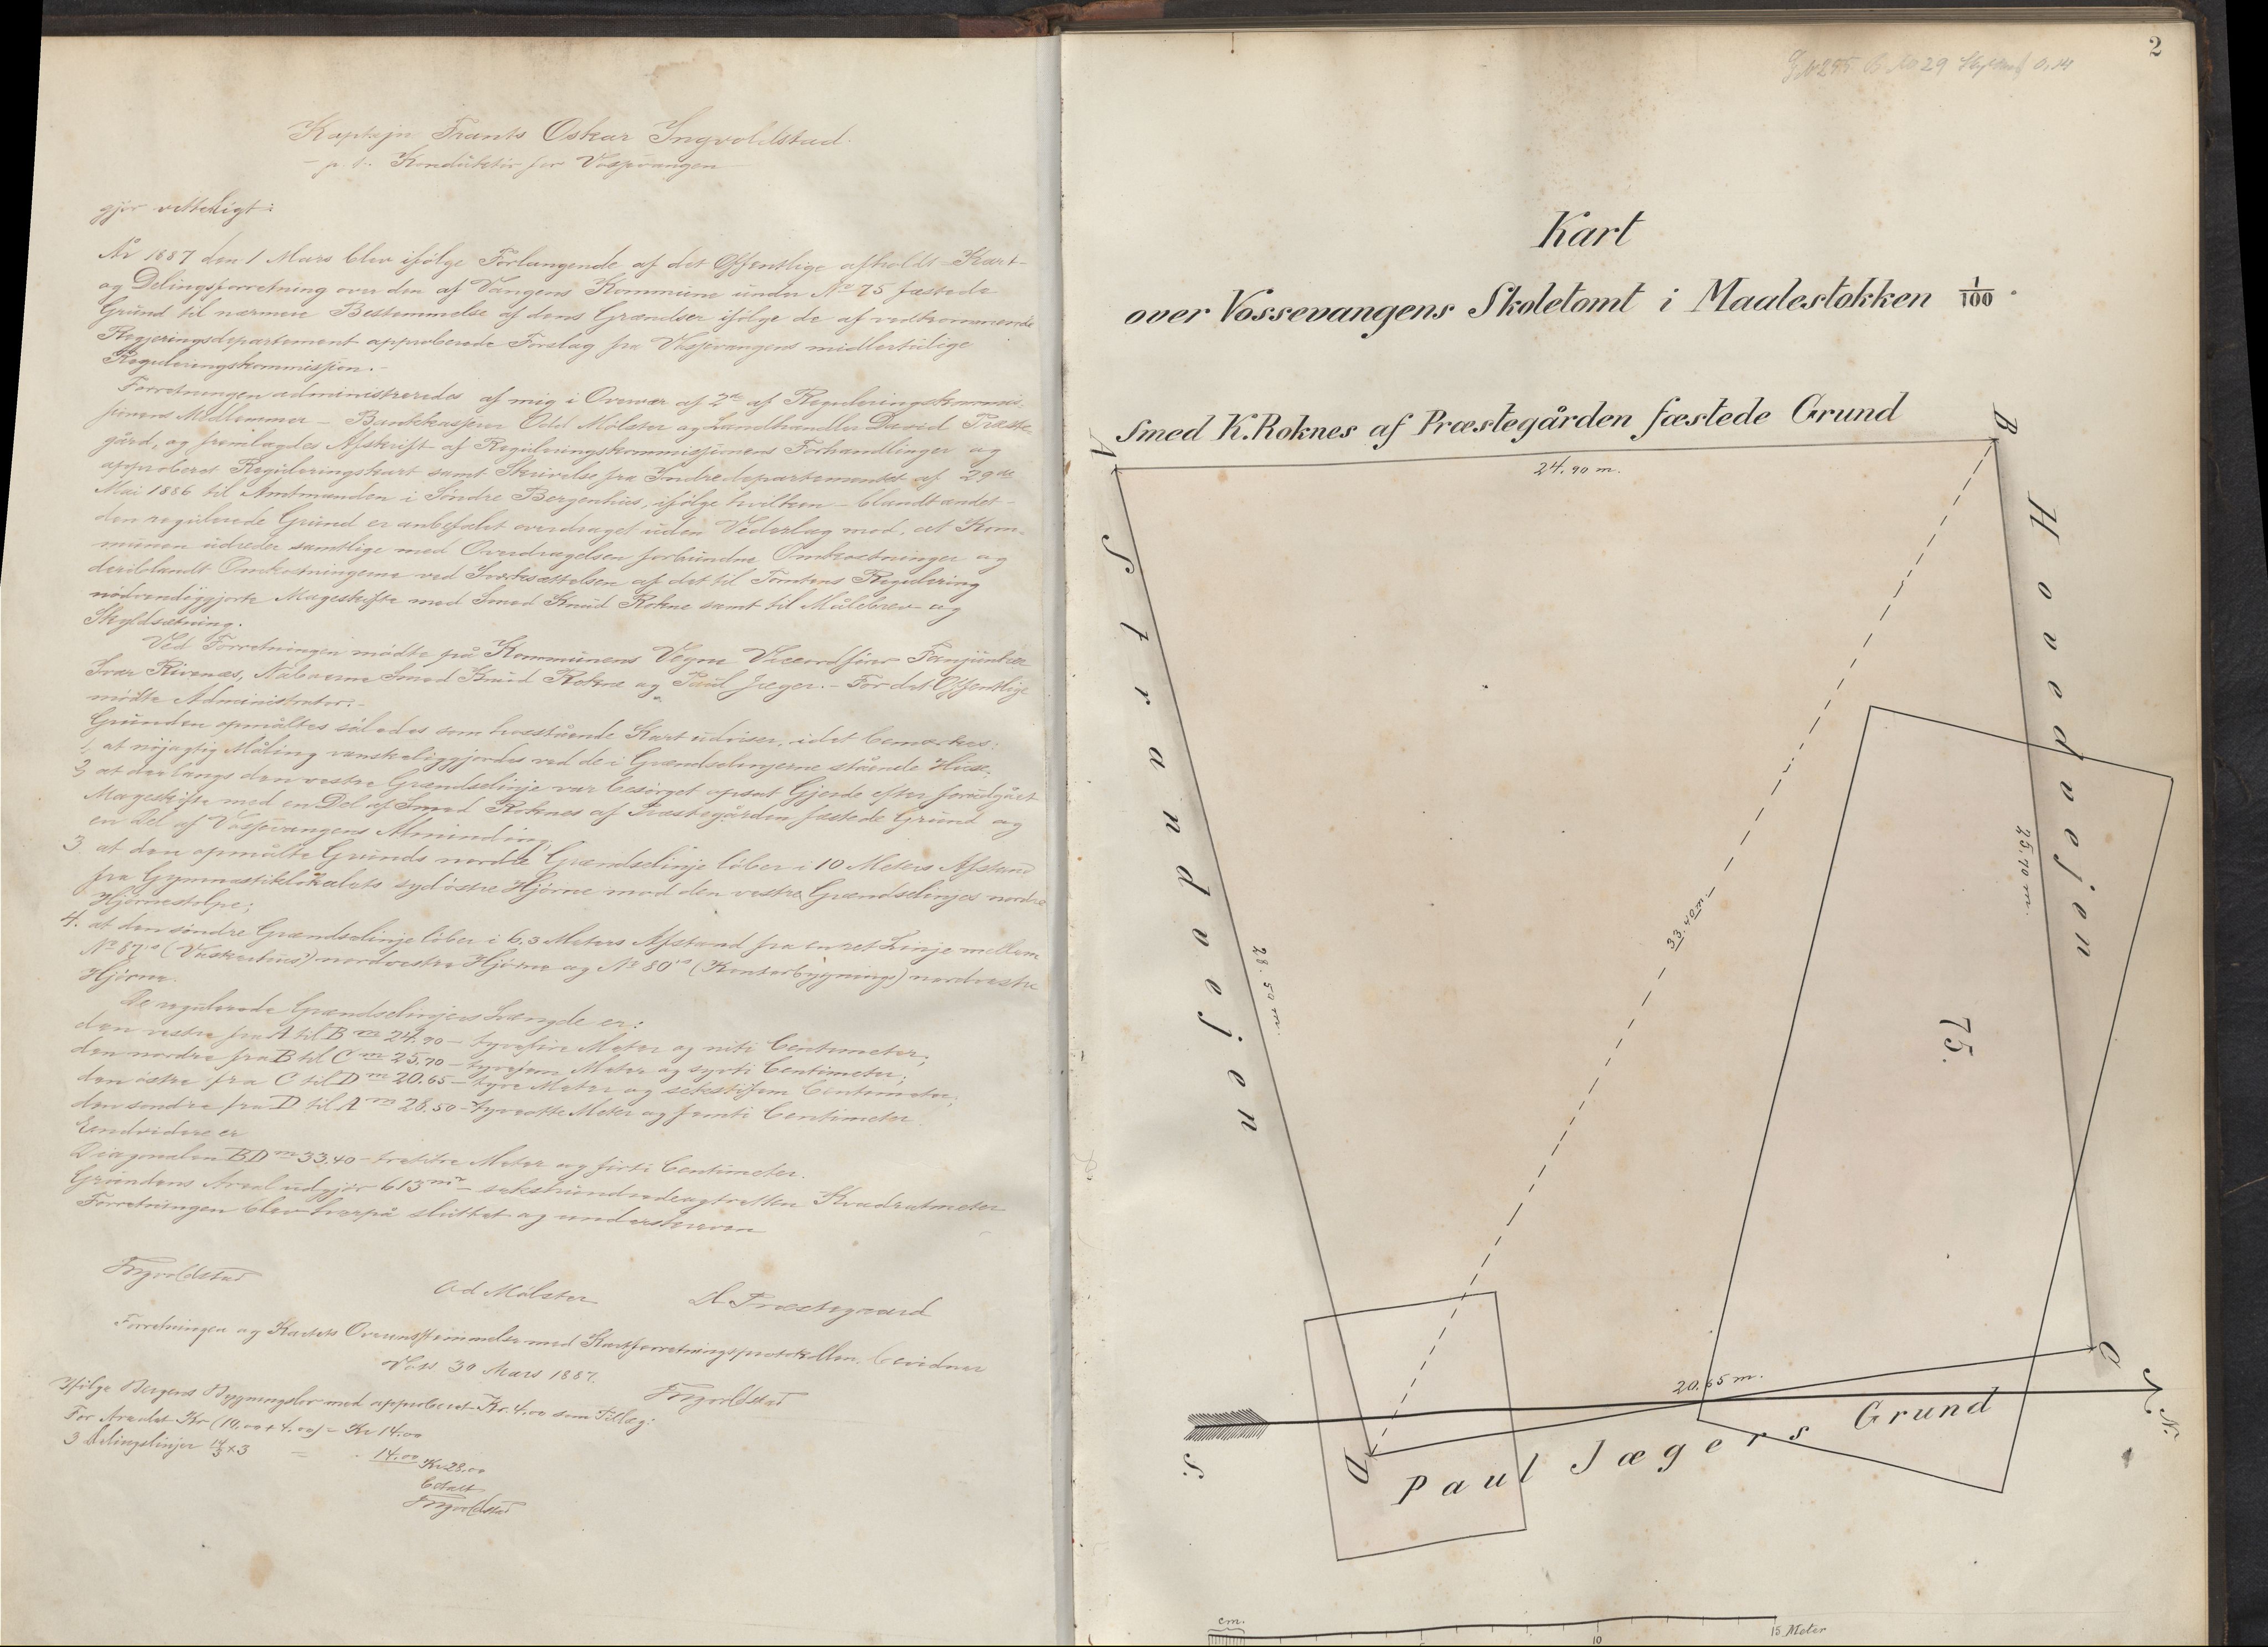 Kaptejn Frants Oskar Ingvoldstad
- p. t. Konduktør for Vossevangen
gjør vitterligt:
År 1887 den 1 Mars blev ifølge Forlangende af det Offentlige afholdt Kart-
og Delingsforretning over den af Vangens Kommune under No 75 fæstede
Grund til nærmere Bestemmelse af dens Grændser ifølge de af vedkommende
Regjeringsdepartement approberede Forslag fra Vossevangens midlertidige
Reguleringskommission.-
Forretningen administreredes af mig i Overvær af 2de af Reguleringskommis-
sionens Medlemmer - Bankkasserer Odd Mölster og Landhandler David Præste-
gård, og fremlagdes Afskrift af Reguleringskommissionens Forhandlinger og
approberet Reguleringskart samt Skrivelse fra Indredepartementet af 29de
Mai 1886 til Amtmanden i Söndre Bergenhus, ifølge hvilken - blandt andet -
den regulerede Grund er anbefalet overdraget uden Vederlag mod, at Kom-
munen udreder samtlige med Overdragelsen forbundne Omkostninger og
deriblandt Omkostningerne ved Iværksættelsen af det til Tomtens Regulering
nødvendiggjorte Mageskifte med Smed Knud Rokne samt til Målebrev og
Skyldsætning.
Ved Forretningen mødte på Kommunens Vegne Viceordfører Fanejunker
Ivar Rivenæs, Naboerne Smed Knud Rokne og Paul Jæger. - For det Offentlige
mødte Administrator.-
Grunden opmåltes således som hosstående Kart udviser, idet bemærkes:
1, at nöjagtig Måling vanskeliggjordes ved de i Grændselinjerne stående Huse,
2, at der langs den vestre Grændselinje var besörget opsat Gjerde efter forudgået
Mageskifte med en Del af Smed Roknes af Præstegården fæstede Grund og
en Del af Vossevangens Almindin,
3. at den opmålte Grunds nordre Grændselinje löber i 10 Meters Afstand
fra Gymnastiklokalets sydöstre Hjörne mod den vestre Grændselinjes nordre
Hjörnestolpe;
4. at den söndre Grændselinje löber i 6,3 Meters Afstand fra en ret Linje mellem
No 87's (Vaskerhus) nordvestre Hjörne og No 80's (Kontorbygnings) nordvestre
Hjörne.
De regulerede Grændselinjers Længde er:
den vestre fra A til B m 24.90 - tyvefire Meter og niti Centimeter;
den nordre fra B til C m 25.70 - tyvefem Meter og sytti Centimeter;
den östre fra C til D m 20.65 - tyve Meter og sekstifem Centimeter;
den söndre fra D til A m 28.50 - tyveotte Meter og femti Centimeter.
Endvidere er
Diagonalen BD m 33.40 - trettitre Meter og firti Centimeter.
Grundens Areal udgjör 613 m2 - sekshundredeogtretten Kvadratmeter
Forretningen blev herpå sluttet og underskreven
Ingvoldstad
Od Mölster
D Præstegaard
Forretningen og Kartets Overensstemmelse med Kartforretningsprotokollen, bevidner
Voss 30 Mars 1887.
Ingvoldstad
Ifölge Bergens Bygningslov med approberet Kr. 4.00 som Tillæg:
For Arealet Kr (10,00 + 4,00) = Kr 14.00
3 Delingslinjer 14/3 x 3 = - 14.00 Kr 28.00
betalt
Ingvoldstad
2
B No 29 0.14
Kart
over Vossevangens Skoletomt i Maalestokken 1/100.
Smed K. Roknes af Præstegården fæstede Grund
A
B
24.90 m.
Strandvejen
Hovedvejen
25.70 m.
33.40 m.
28.50 m.
75.
C
20.65 m.
D
S.
N.
Paul Jægers Grund
cm.
5
10
15 Meter